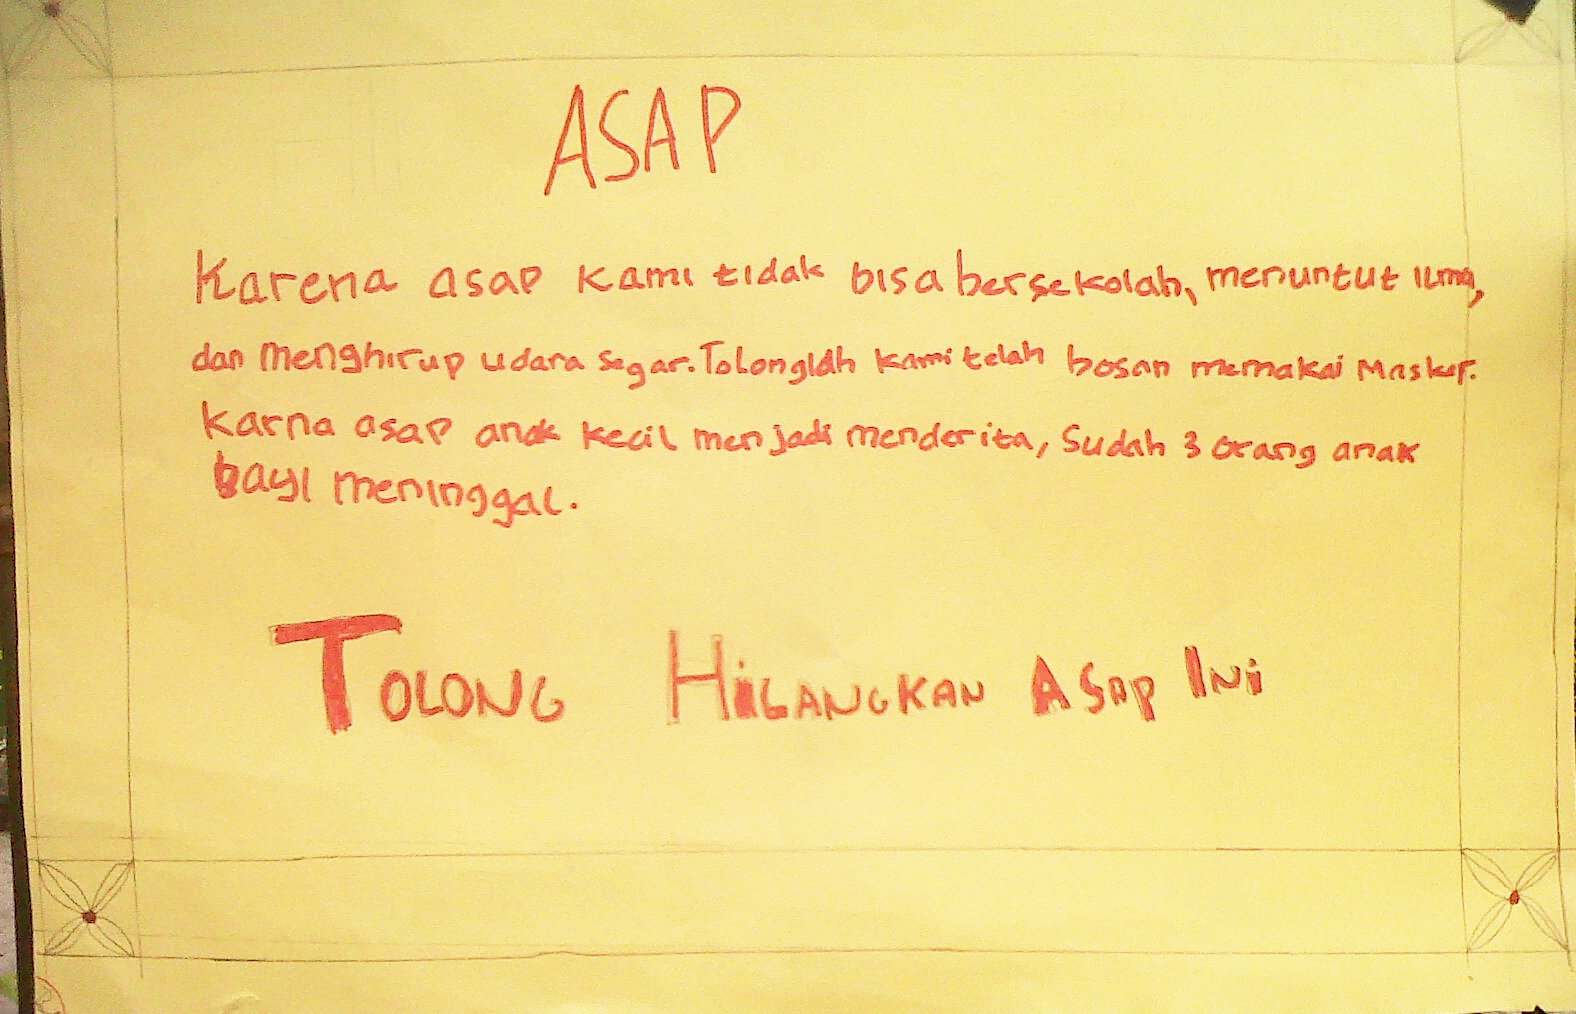 ASAP
Karena asap kami tidak bisa bersekolah, menuntut ilmu,
dan menghirup udara segar. Tolonglah kami telah bosan memakai masker.
Karna asap anak kecil menjadi menderita, Sudah 3 orang anak
bayi meninggal.
TOLONG HiLANGKAN ASAP INi